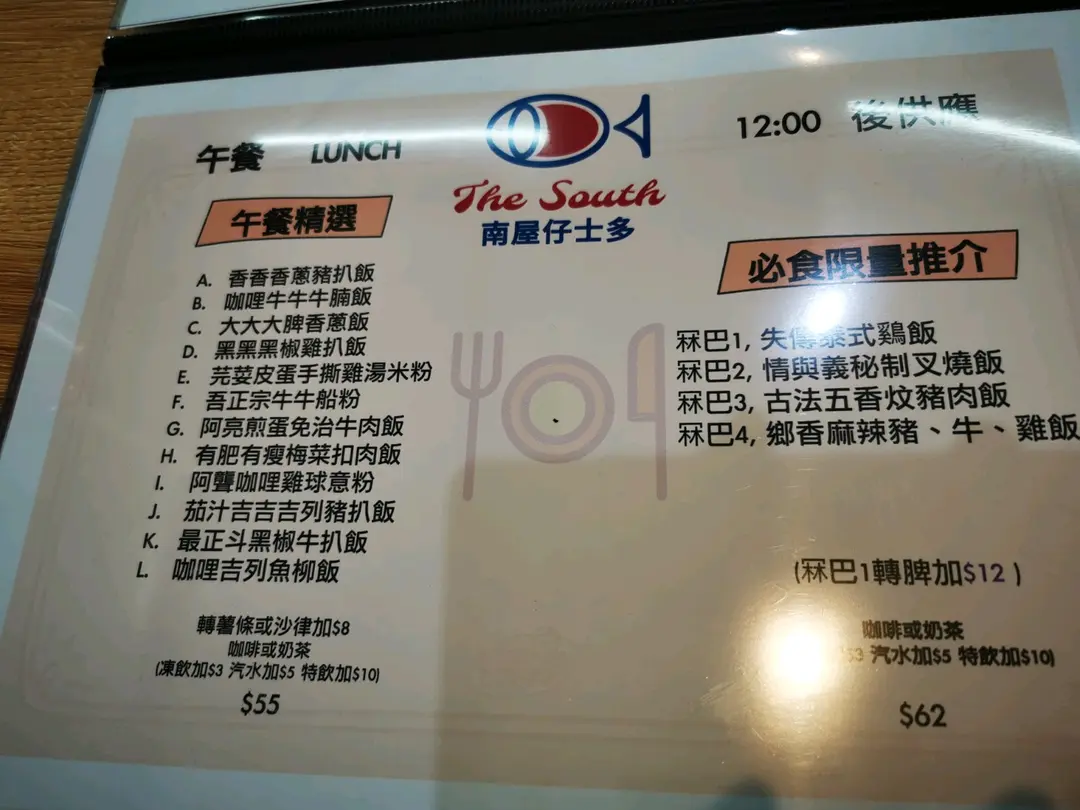 午餐 LUNCH
12:00 後供應
The South
南屋仔士多
午餐精選
A. 香香香蔥豬扒飯
B. 咖哩牛牛牛腩飯
C. 大大大脾香蔥飯
D. 黑黑黑椒雞扒飯
E. 芫荽皮蛋手撕雞湯米粉
F. 吾正宗牛牛船粉
G. 阿亮煎蛋免治牛肉飯
H. 有肥有瘦梅菜扣肉飯
I. 阿聾咖哩雞球意粉
J. 茄汁吉吉吉列豬扒飯
K. 最正斗黑椒牛扒飯
L. 咖哩吉列魚柳飯
轉薯條或沙律加$8
咖啡或奶茶
(凍飲加$3 汽水加$5 特飲加$10)
$55
必食限量推介
冧巴1, 失傳泰式鷄飯
冧巴2, 情與義秘制叉燒飯
冧巴3, 古法五香炆豬肉飯
冧巴4, 鄉香麻辣豬、牛、雞飯
(冧巴1轉脾加$12 )
咖啡或奶茶
$3 汽水加$5 特飲加$10)
$62